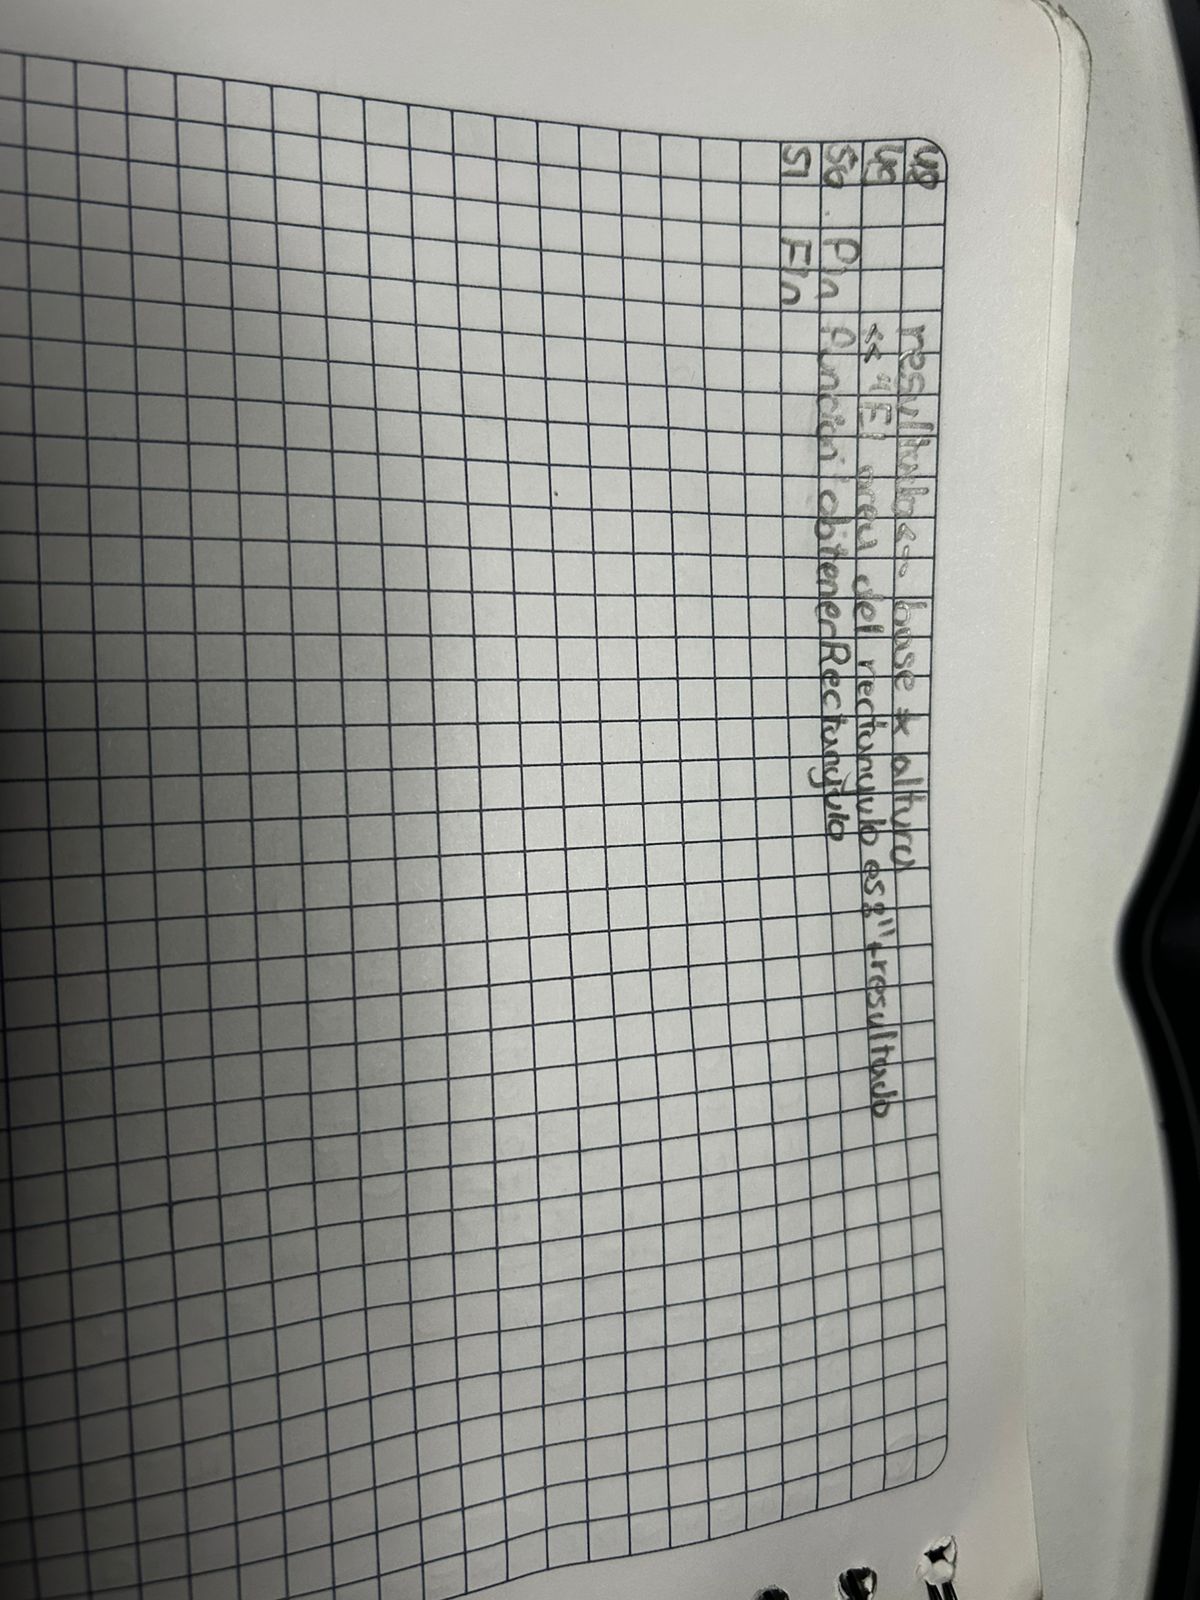 48 resultado <- base * altura
49 << "El area del rectangulo es:" + resultado
50. Fin función obtenerRectangulo
51 Fin